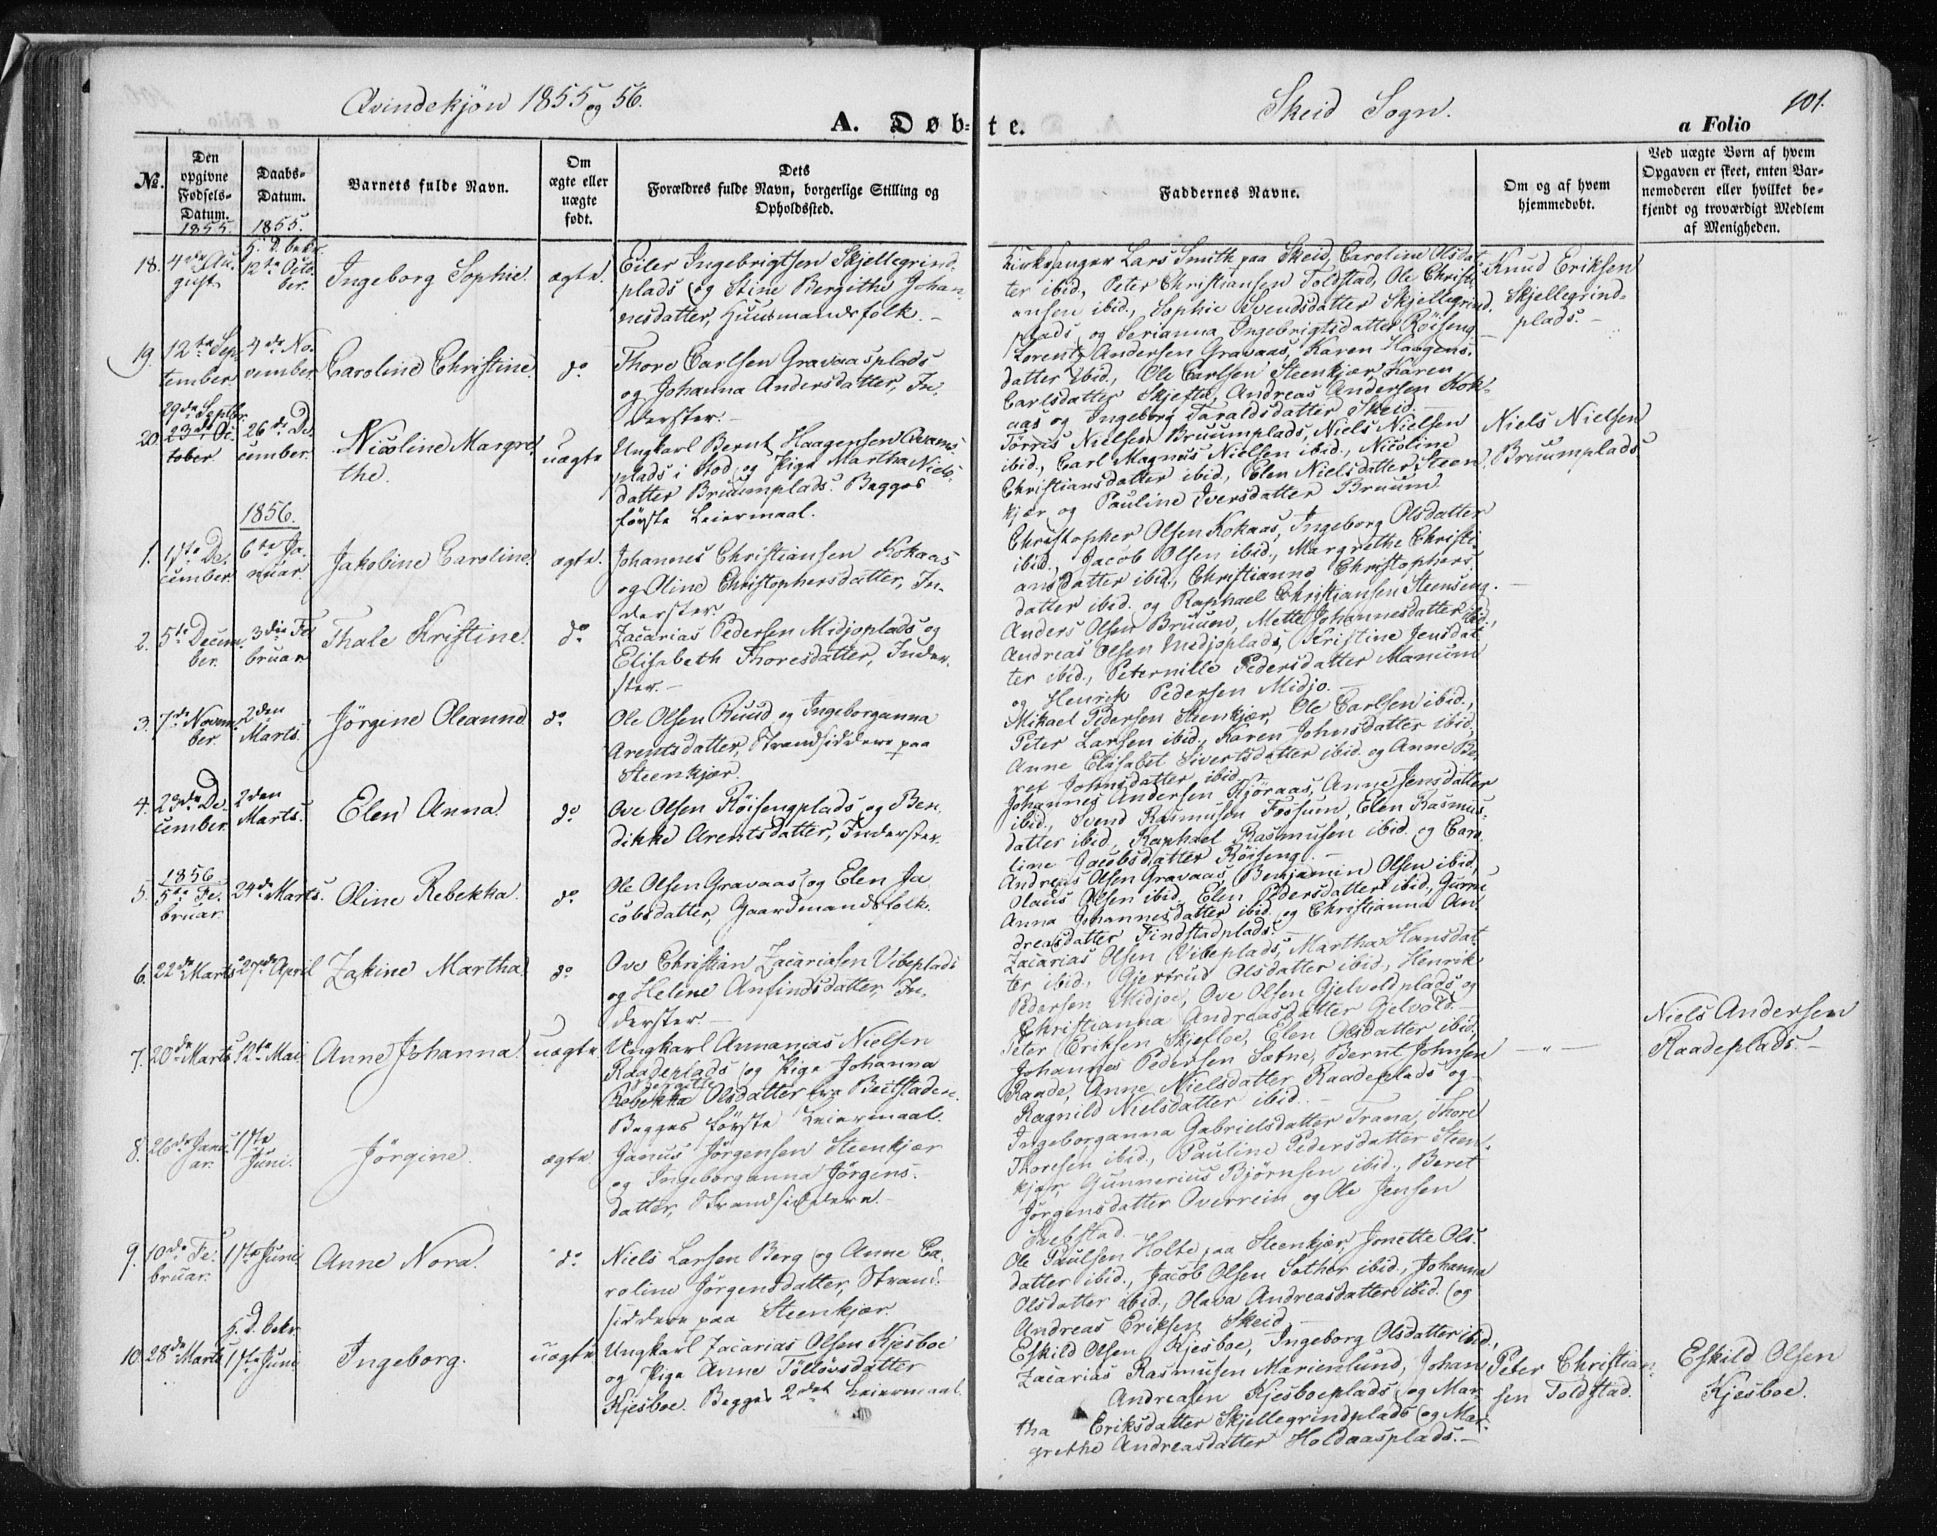 Qvindekjøn 1855 og 56.
Skeid Sogn.
101.
A. Døbte.
a Folio
No.
Den opgivne Fødsels-Datum.
Daabs-Datum.
Barnets fulde Navn.
Om ægte eller uægte født.
Dets Forældres fulde Navn, borgerlige Stilling og Opholdssted.
Faddernes Navne.
Om og af hvem hjemmedøbt.
Ved uægte Børn af hvem
Opgaven er skeet, enten Bar-
nemoderen eller hvilket be-
kjendt og troværdigt Medlem
af Menigheden.
1855.
1855.
18.
4de Au-
gust
H. D. bekr.
12te Octo-
ber.
Ingeborg Sophie.
ægte.
Eiler Ingebrigtsen Skjellegrind-
plads og Stine Bergithe Johan-
nesdatter, Huusmandsfolk.-
Kirkesanger Lars Smith paa Skeid, Caroline Olsdat-
ter ibid, Peter Christiansen Toldstad, Ole Christi-
ansen ibid, Sophie Svendsdatter Skjellegrind-
plads og Serianna Ingebrigtsdatter Röiseng.-
Knud Eriksen
Skjellegrind-
plads.-
19.
12te Sep-
tember
4de No-
vember
Caroline Christine.
do
Thore Carlsen Gravaasplads
og Johanna Andersdatter, In-
derster.-
Lorents Andersen Gravaas, Karen Haagens-
datter ibid., Ole Carlsen Steenkjær, Karen
Carlsdatter Skjefte, Andreas Andersen Kok-
aas og Ingeborg Taraldsdatter Skeid.-
20.
29de Septbr
23de Oc-
tober
26de De-
cember.
Nicoline Margre-
the.
uægte
Ungkarl Bernt Haagensen Qvams-
plads i Stod og Pige Martha Niels-
datter Bruumplads. Begges
første Leiermaal.
Törris Nielsen Bruumplads, Niels Nielsen
ibid., Carl Magnus Nielsen ibid., Nicoline
Christiansdatter ibid., Elen Nielsdatter Steen-
kjær og Pauline Iversdatter Bruum
Niels Nielsen
Bruumplads
1856.
1.
17te De-
cember
6te Ja-
nuar.
Jakobine Caroline.
ægte.
Johannes Christiansen Kokaas
og Oline Christophersdatter, In-
derster
Christopher Olsen Kokaas, Ingeborg Olsdatter
ibid., Jacob Olsen ibid., Margrethe Christi-
ansdatter ibid., Christianne Christophers-
datter ibid. og Raphael Christiansen Steenseng.-
2.
5te Decem-
ber.
3die Fe-
bruar
Thale Kristine.
do
Zacarias Pedersen Midjoplads og
Elisabeth Thoresdatter, Inder-
ster.-
Anders Olsen Bruuem, Mette Johannesdatter ibid.,
Andreas Olsen Midjoplads, Kristine Jensdat-
ter ibid., Peternille Pedersdatter Manum
og Henrik Pedersen Midjo.-
3.
7de Novem-
ber.
2den
Marts.
Jörgine Oleanne
do
Ole Olsen Ruud og Ingeborganna
Arentsdatter, Strandsiddere paa
Steenkjær.
Mikael Pedersen Steenkjær, Ole Carlsen ibid.,
Peter Larsen ibid., Karen Johnsdatter ibid,
Anne Elisabet Sivertsdatter ibid. og Anne Be-
ret Johnsdatter ibid.-
4.
23de De-
cember
2den
Marts.
Elen Anna.
do
Ove Olsen Röisengplads og Ben-
dikke Arentsdatter, Inderster.
Johannes Andersen Hjöraas, Anne Jensdatter
ibid., Svend Rasmusen Fossum, Elen Rasmus-
datter ibid., Raphael Rasmusen ibid. og Caro-
line Jacobsdatter Röiseng.-
1856
5.
5te Fe-
bruar.
24de Marts.
Oline Rebekka.
do
Ole Olsen Gravaas og Elen Ja-
cobsdatter, Gaardmandsfolk.
Andreas Olsen Gravaas, Benjamin Olsen ibid,
Olaus Olsen ibid, Elen Pedersdatter ibid, Gurru
Anna Johannesdatter ibid. og Christianna An-
dreasdatter Findstadplads.-
6.
22de Marts
27de April
Zakine Martha.
do
Ove Christian Zacariasen Vibeplads
og Helene Anfindsdatter, In-
derster.-
Zacarias Olsen Vibeplads, Martha Hansdat-
ter ibid., Gjertrud Olsdatter ibid., Henrik
Pedersen Midjoe, Ove Olsen Gjelvoldplads og
Christianna Andreasdatter Gjelvold.-
7.
20de Marts
12te Mai
Anne Johanna.
uægte
Ungkarl Annanias Nielsen
Raadeplads og Pige Johanna
Bergitte
Rebekka Olsdatter fra Beitstaden.
Begges første Leiermaal.
Peter Eriksen Skjefloe, Elen Olsdatter ibid,
Johannes Pedersen Sætne, Bernt Johnsen
Raade, Anne Nielsdatter Raadeplads og
Ragnild Nielsdatter ibid.-
- " -
Niels Andersen
Raadeplads.-
8.
26de Janu-
ar.
1ste
Juni.
Jörgine.
ægte.
Janus Jörgensen Steenkjær
og Ingeborganna Jörgens-
datter, Strandsiddere.-
Ingeborganna Gabrielsdatter Trana, Thore
Thoresen ibid., Pauline Pedersdatter Steen-
kjær, Gunnerius Björnsen ibid., Beret
Jörgensdatter Overrein og Ole Jensen
Svebstad.-
9.
10de Fe-
bruar.
1ste Juni
Anne Nora.
do
Niels Larsen Berg og Anne Ca-
roline Jörgensdatter, Strand-
siddere paa Steenkjær.
Ole Paulsen Holte paa Steenkjær, Jonette Ols-
datter ibid., Jacob Olsen Sother ibid., Johanna
Olsdatter ibid., Olava Andreasdatter ibid. og
Andreas Eriksen Skeid.-
10.
28de Marts
H. D. bekr.
1ste Juni
Ingeborg.
uægte
Ungkarl Zacarias Olsen Kjesboe
og Pige Anne Tollövsdatter
Kjesboe. Begges 2det Leiermaal.
Eskild Olsen Kjesboe, Ingeborg Olsdatter ibid,
Zacarias Rasmusen Marienlund, Johan
Andreasen Kjesboeplads og Mar-
tha Eriksdatter Skjellegrindplads og Mar-
grethe Andreasdatter Holdaasplads.-
Peter Christian-
sen Toldstad.
Eskild Olsen
Kjesboe.